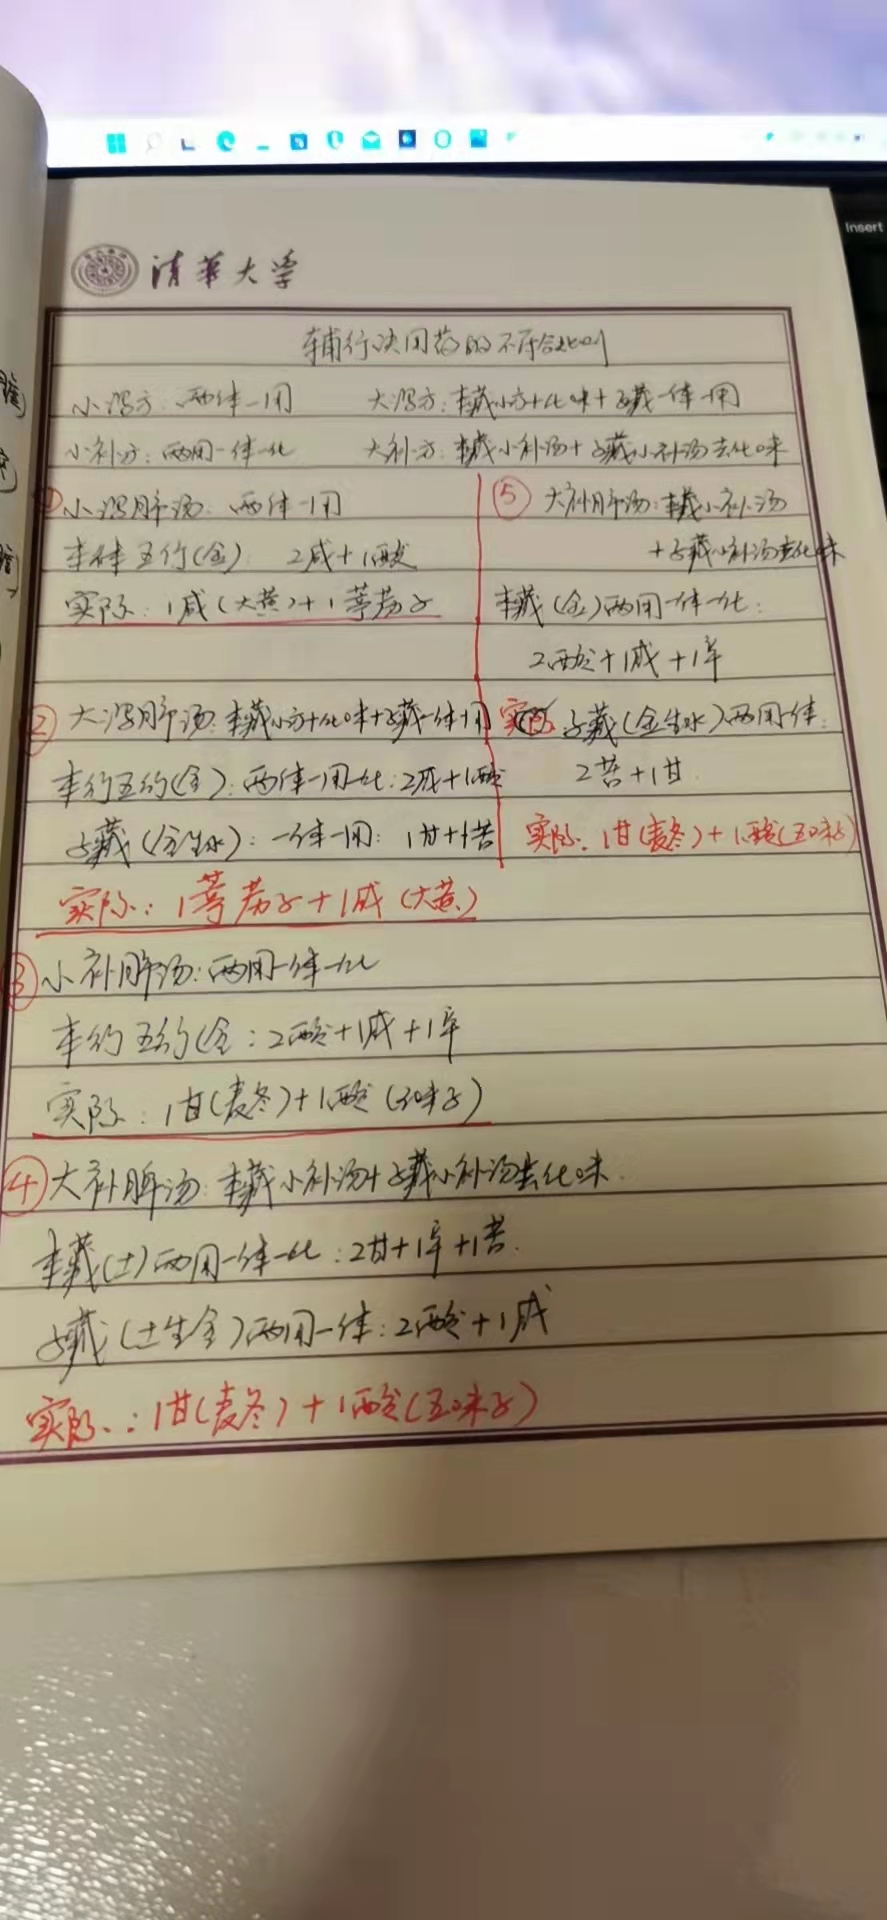 Insert
清华大学
辅行诀用药的不符合比例
小泻方:两体一用 大泻方:本藏小方+化味+子藏一体一用
小补方:两用一体一化 大补方:本藏小补汤+子藏小补汤去化味
① 小泻肺汤:两体一用
五行(金) 2咸+1酸
实际:1咸(大黄)+1葶苈子
② 大泻肺汤:本藏小方+化味+子藏一体一用
本行五行(金):两体一用一化:2咸+1酸
子藏(金生水):一体一用:1甘+1苦
实际:1葶苈子+1咸(大黄)
③ 小补肺汤:两用一体一化
本行五行(金:2酸+1咸+1辛
实际:1甘(麦冬)+1酸(五味子)
④ 大补脾汤:本藏小补汤+子藏小补汤去化味.
本藏(土)两用一体一化:2甘+1辛+1苦.
子藏(土生金)两用一体:2酸+1咸
实际:1甘(麦冬)+1酸(五味子)
⑤ 大补肺汤:本藏小补汤
+子藏小补汤去化味
本藏(金)两用一体一化:
2酸+1咸+1辛
实际 子藏(金生水)两用一体:
2苦+1甘
实际:1甘(麦冬)+1酸(五味子)